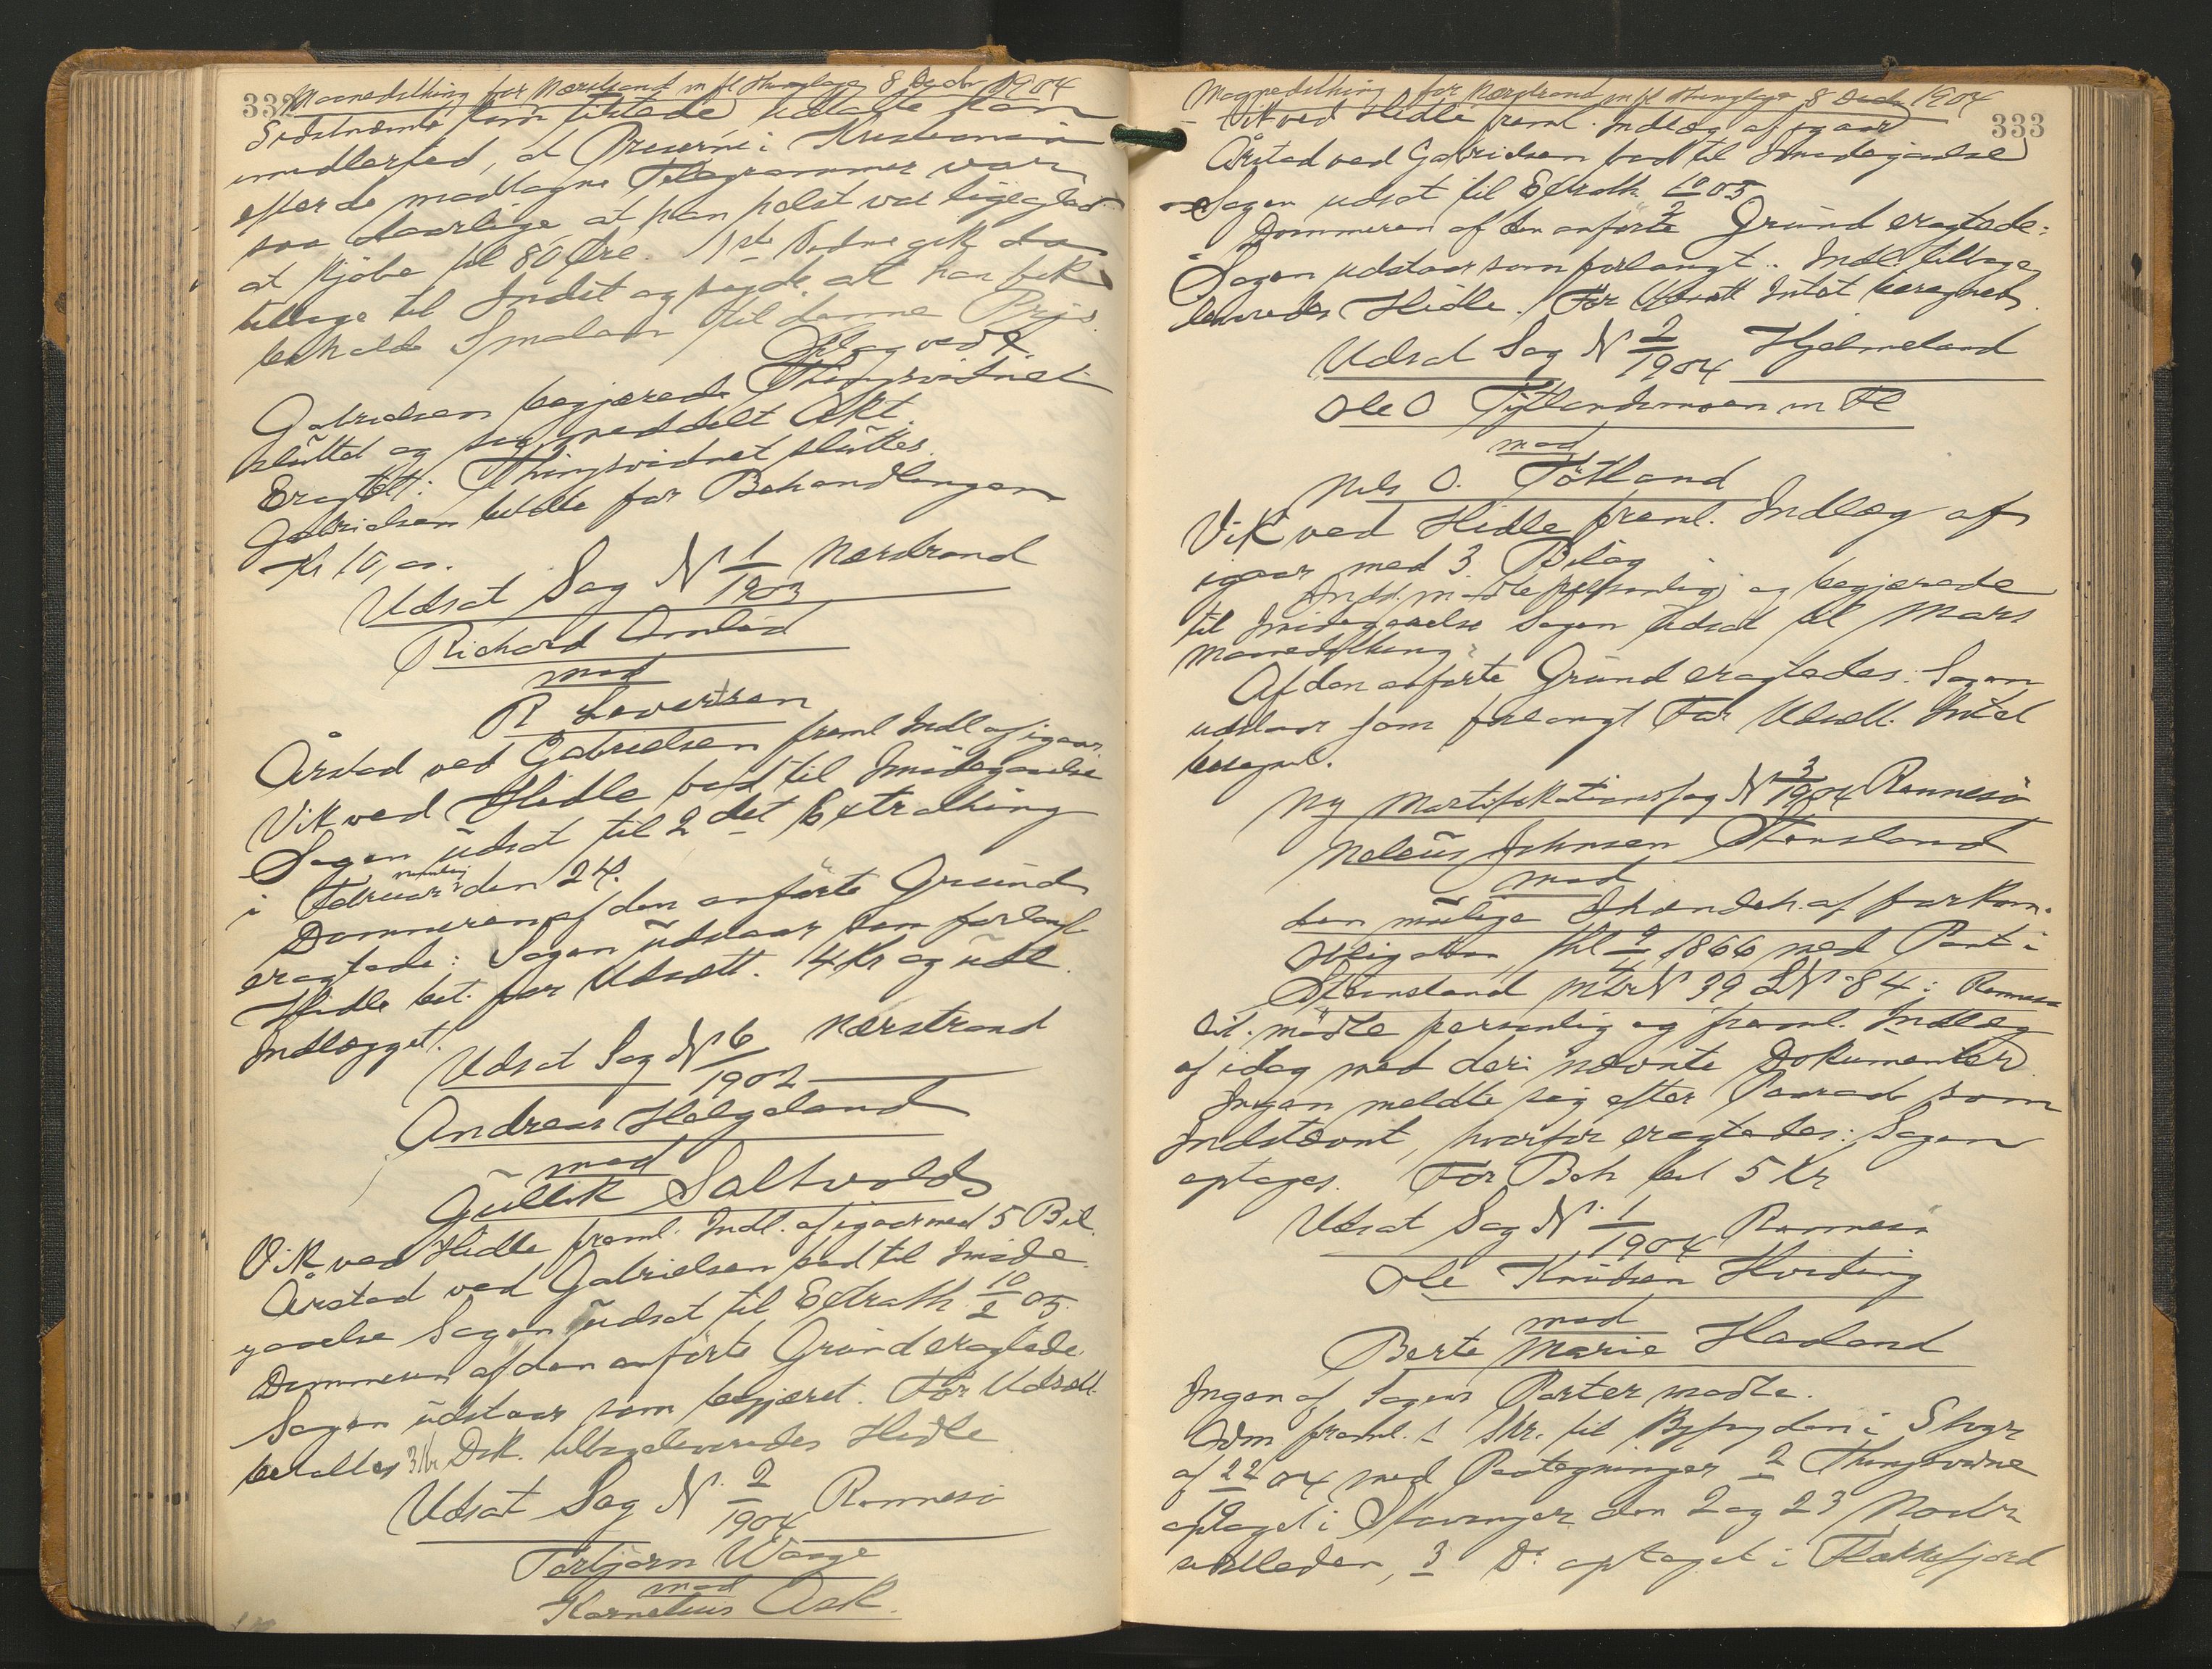 332
Maanedsthing for Nærstrand m fl Thinglag 8 Decbr 1904
Sidstnævnte som tilstede udtalte han
imidlertid, at Priserne i Kristiania
efter de modtagne Telegrammer var
saa daarlige, at han helst var ligeglad
at kjøbe til 80 Øre. 1ste Vidne gik da
tilbage til Indst og sagde at han fik
beholde Smalan til denne Pris.
Gabrielsen begjærede Thingsvidnet
sluttet og sig meddelt Akt.
Eragtet: Thingsvidnet sluttes.
Gabrielsen betalte for Behandlingen
Kr 10,00.
Udsat Sag N 1/1903 Nærstrand
Richard Amlid
mod
R Sevartsen
Årstad ved Gabrielsen freml Indl af igaar.
Vik ved Hidle bad til Imødegaaelse
Sagen udsat til 2det Extrathing
i Februar nemlig den 24.
Dommeren af den anførte Grund
eragtede: Sagen udstaar som forlangt
Hidle bet. for Udsætt. 4 Kr og udl.
Indlægget.
Udsat Sag N 6/1902 Nærstrand
Andreas Helgeland
mod
Gullik Saltvold
Vik ved Hidle freml. Indl. af igaar med 5 Bil.
Årstad ved Gabrielsen bad til Imøde
gaaelse Sagen udsat til Extrath 10/2 05.
Dommeren af den anførte Grund eragtede
Sagen udstaar som begjæret. For Udsætt.
betaltes 3 Kr Dok. tilbageleveredes Hidle
Udsat Sag N. 2/1904 Rennesø
Torbjørn Waage
mod
Kornelius Ask.
333
Maanedsthing for Nærstrand m fl Thinglag 8 Decbr 1904
Vik ved Hidle freml. Indlæg af igaar
Årstad ved Gabrielsen bad til Imødegaaelse
Sagen udsat til Extrath 10/2 05
Dommeren af den anførte Grund eragtede:
Sagen udstaar som forlangt. Indl. tilbage
leveredes Hidle. For Udsætt Intet beregnet.
Udsat Sag N 2/1904 Hjelmeland
Ole O Tytlandsmoen m Fl
mod
Nils O. Tøtland
Vik ved Hidle freml. Indlæg af
igaar med 3 Bilag
Indst. mødte personlig og begjærede
til Imødegaaelse Sagen udsat til Mars
Maanedsthing.
Af den anførte Grund eragtedes: Sagen
udstaar som forlangt For Udsætt. Intet
beregnet.
Ny Mortifikationssag N 3/1904 Rennesø
Neleus Johnsen Stensland
mod
den mulige Ihændeh. af forkom.
Obligation, thl 9/1 1866 med Pant i
Steinsland MtrN 39 LN 84 i Rennesø
Cit. mødte personlig og freml. Indlæg
af idag med deri nævnte Dokumenter
Ingen meldte sig efter Paaraab som
Indstævnt, hvorfor eragtedes: Sagen
optages. For Beh bet 5 Kr
Udsat Sag N. 1/1904 Rennesø
Ole Knudsen Hviding
mod
Berte Marie Hadland
Ingen af Sagens Parter mødte.
Adm freml. 1 Skr. til Byfogden i Stvgr
af 22/10 04 med Paategninger 2 Thingsvidne
optaget i Stavanger den 2 og 23 Novbr
sidstleden, 3 Do optaget i Flekkefjord